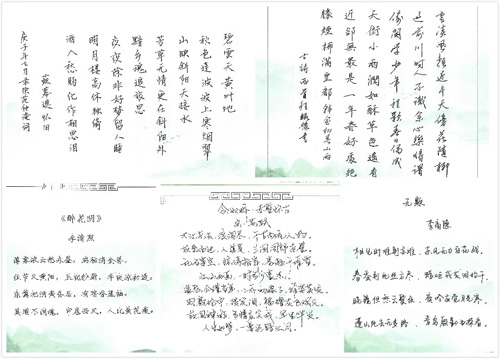 碧雲天黄葉地
秋色连波波上寒烟翠
山映斜陽天接水
芳草无情更在斜陽外
黯鄉魂追旅思
夜夜除非好梦留人睡
明月楼高休独倚
酒入愁肠化作相思泪
苏幕遮 怀旧
庚子年七月录宋范仲淹词
雲淡風輕近午天傍花隨柳
过前川时人不識余心樂將謂
偷閒學少年 程颢春日偶成
天街小雨潤如酥草色遥看
近卻無最是一年春好處絕
勝煙柳滿皇都 韓愈初春小雨
古詩兩首
《醉花阴》
李清照
薄雾浓云愁永昼，瑞脑消金兽。
佳节又重阳，玉枕纱厨，半夜凉初透。
东篱把酒黄昏后，有暗香盈袖。
莫道不消魂，帘卷西风，人比黄花瘦。
念奴娇·赤壁怀古
宋·苏轼
大江东去，浪淘尽，千古风流人物。
故垒西边，人道是，三国周郎赤壁。
乱石穿空，惊涛拍岸，卷起千堆雪。
江山如画，一时多少豪杰。
遥想公瑾当年，小乔初嫁了，雄姿英发。
羽扇纶巾，谈笑间，樯橹灰飞烟灭。
故国神游，多情应笑我，早生华发。
人生如梦，一尊还酹江月。
无题
李商隐
相见时难别亦难，东风无力百花残。
春蚕到死丝方尽，蜡炬成灰泪始干。
晓镜但愁云鬓改，夜吟应觉月光寒。
蓬山此去无多路，青鸟殷勤为探看。